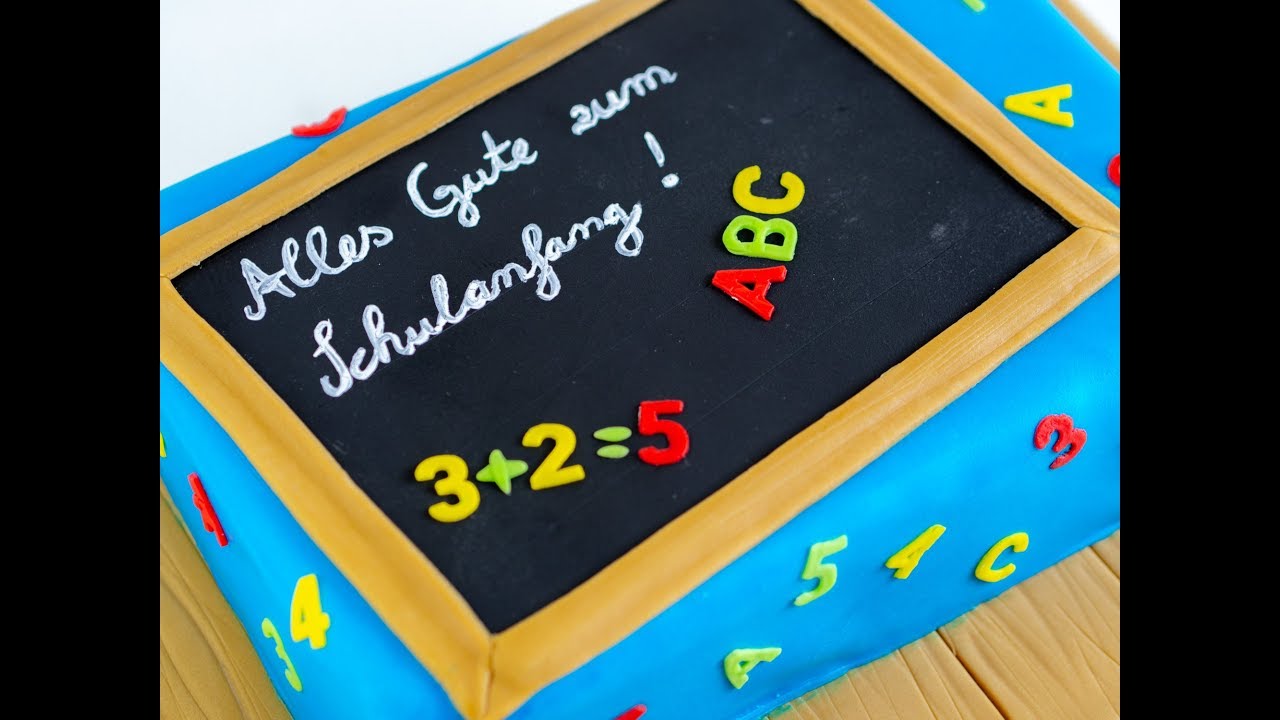 Alles Gute zum
Schulanfang !
ABC
3+2=5
A
3
5 4 C
A
4
3